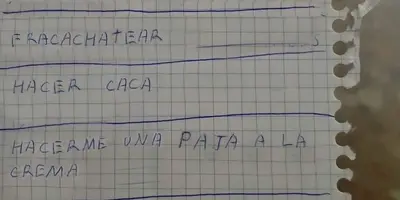 FRACACHATEAR
HACER CACA
HACERME UNA PAJA A LA
CREMA